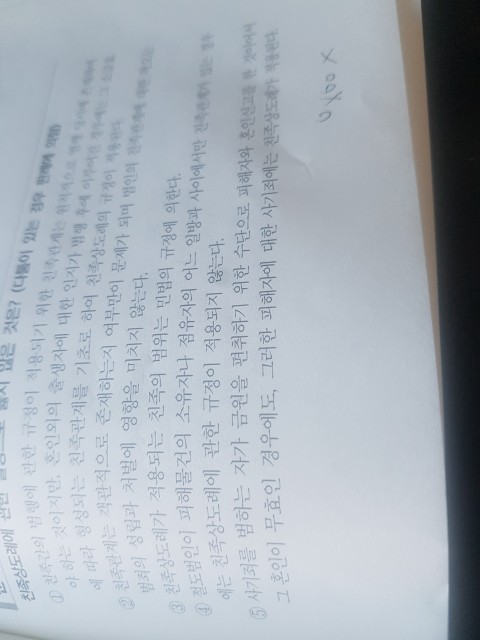 친족상도례에 관한 설명으로 옳지 않은 것은? (다툼이 있는 경우 판례에 의함)
① 친족간의 범행에 관한 규정이 적용되기 위한 친족관계는 원칙적으로 범행 당시에 존재하여
야 하는 것이지만, 혼인외의 출생자에 대한 인지가 범행 후에 이루어진 경우에는 그 소급효
에 따라 형성되는 친족관계를 기초로 하여 친족상도례의 규정이 적용된다.
② 친족관계는 객관적으로 존재하는지 여부만이 문제가 되며 범인의 친족관계에 대한
범죄의 성립과 처벌에 영향을 미치지 않는다.
③ 친족상도례가 적용되는 친족의 범위는 민법의 규정에 의한다.
④ 절도범인이 피해물건의 소유자나 점유자의 어느 일방과 사이에서만 친족관계가 있는 경우
에는 친족상도례에 관한 규정이 적용되지 않는다.
⑤ 사기죄를 범하는 자가 금원을 편취하기 위한 수단으로 피해자와 혼인신고를 한 것이어서
그 혼인이 무효인 경우에도, 그러한 피해자에 대한 사기죄에는 친족상도례가 적용된다.